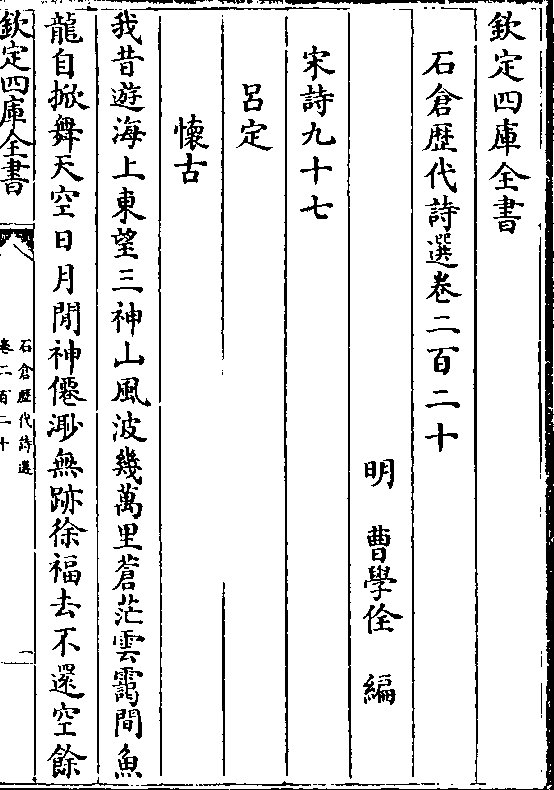 欽定四庫全書
石倉歷代詩選卷二百二十
明 曹學佺 編
宋詩九十七
呂定
懷古
我昔遊海上東望三神山風波幾萬里蒼茫雲靄間魚
龍自掀舞天空日月閒神僊渺無跡徐福去不還空餘
欽定四庫全書
石倉歷代詩選
卷二百二十
一